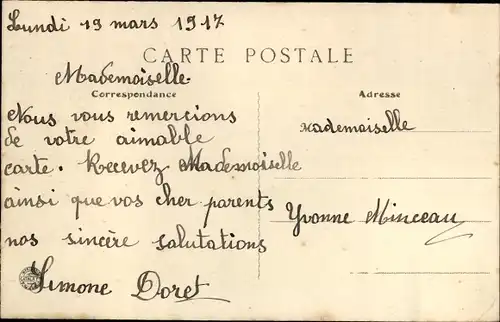 Lundi 19 mars 1917
CARTE POSTALE
Mademoiselle.
Correspondance
Nous vous remercions
de votre aimable
carte. Recevez Mademoiselle
ainsi que vos cher parents
nos sincère salutations
Simone Doret
Adresse
Mademoiselle
Yvonne Minceau